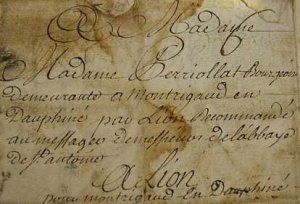 A Madame
Madame Perriollat Bourgeoise
demeurante a Montrigaud en
Dauphiné par Lion Recommandé
au messager de messieurs de labbaye
de st antoine
A Lion
pour montrigaud en Dauphiné